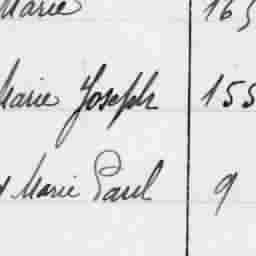 Marie 165
Marie Joseph 155
Marie Paul 9